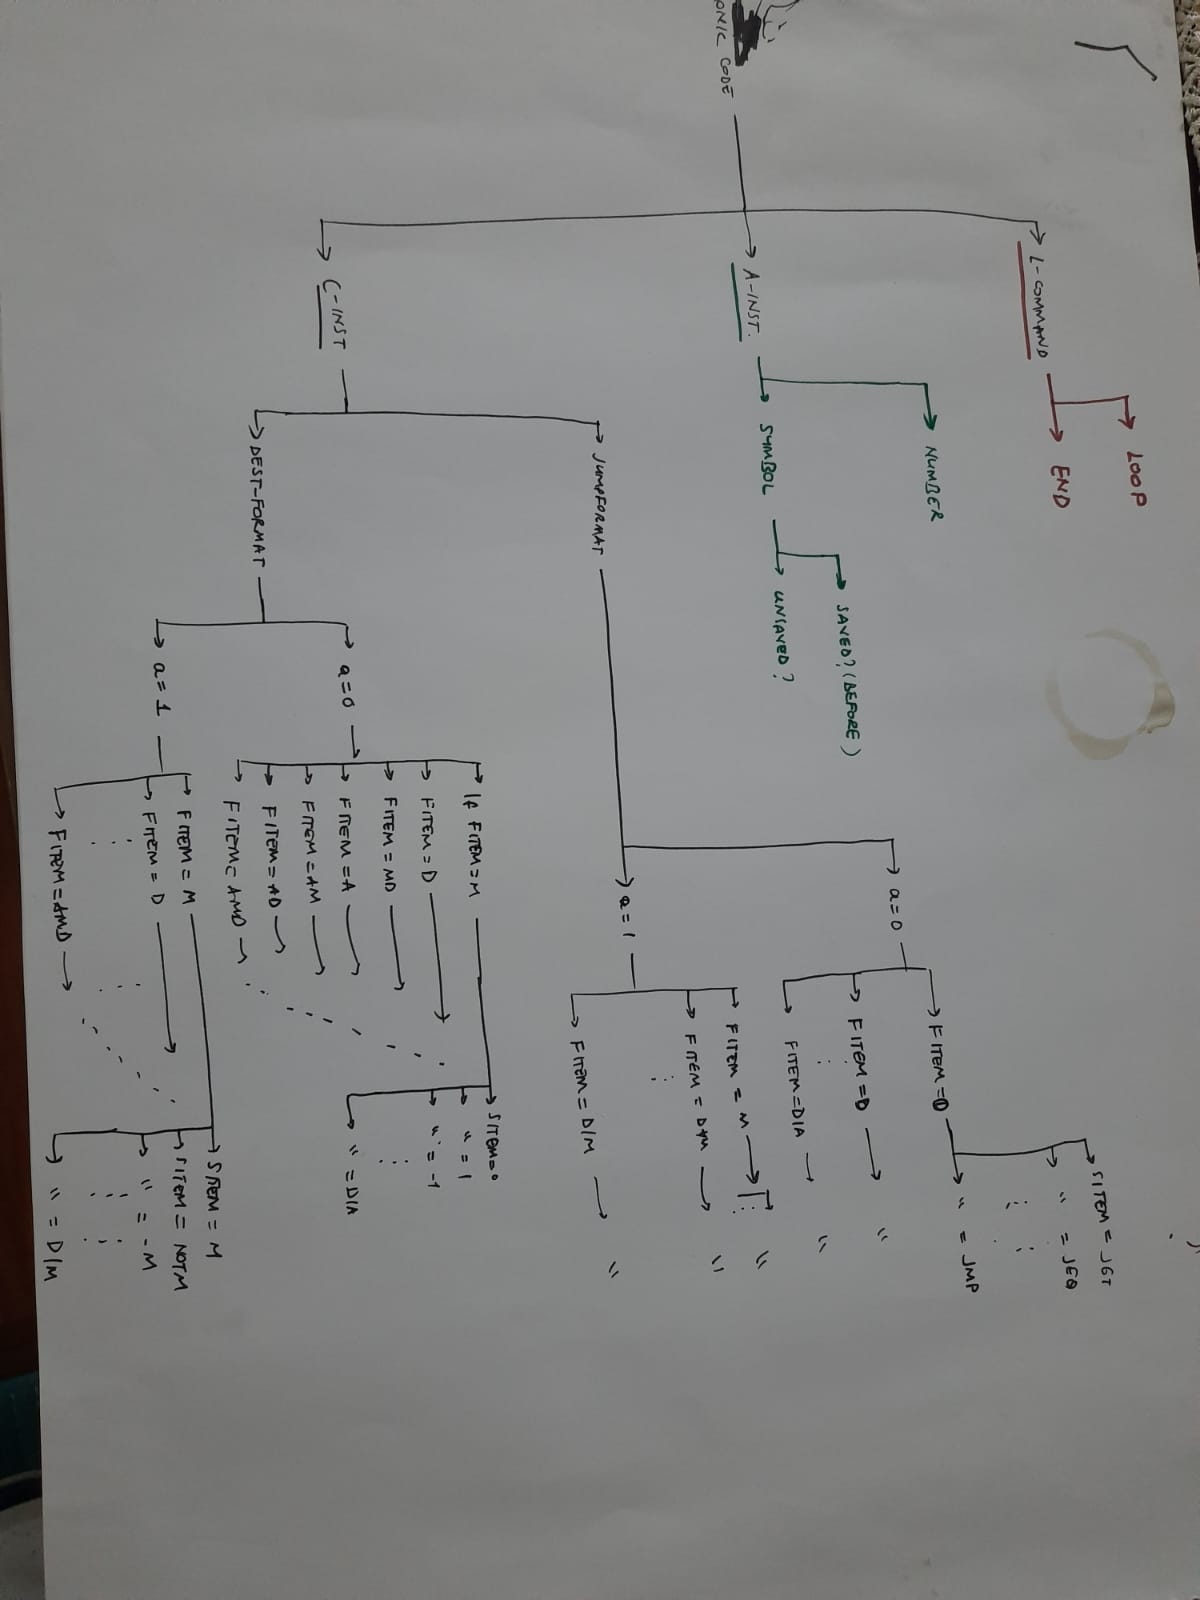 CODE
L-COMMAND
LOOP
END
A-INST.
NUMBER
SYMBOL
SAVED? (BEFORE)
UNSAVED?
C-INST
JUMPFORMAT
a=0
FITEM=0
SITEM = JGT
" = JEQ
" = JMP
FITEM=D
"
FITEM=D|A
"
a=1
FITEM = M
"
FITEM = D+M
"
FITEM = D|M
"
DEST-FORMAT
a=0
If FITEM=M
SITEM=0
" = 1
" = -1
" = D|A
FITEM=D
FITEM=MD
FITEM=A
FITEM=AM
FITEM=AD
FITEM=AMD
a=1
FITEM=M
SITEM=M
SITEM = NOTM
" = -M
" = D|M
FITEM=D
FITEM=AMD